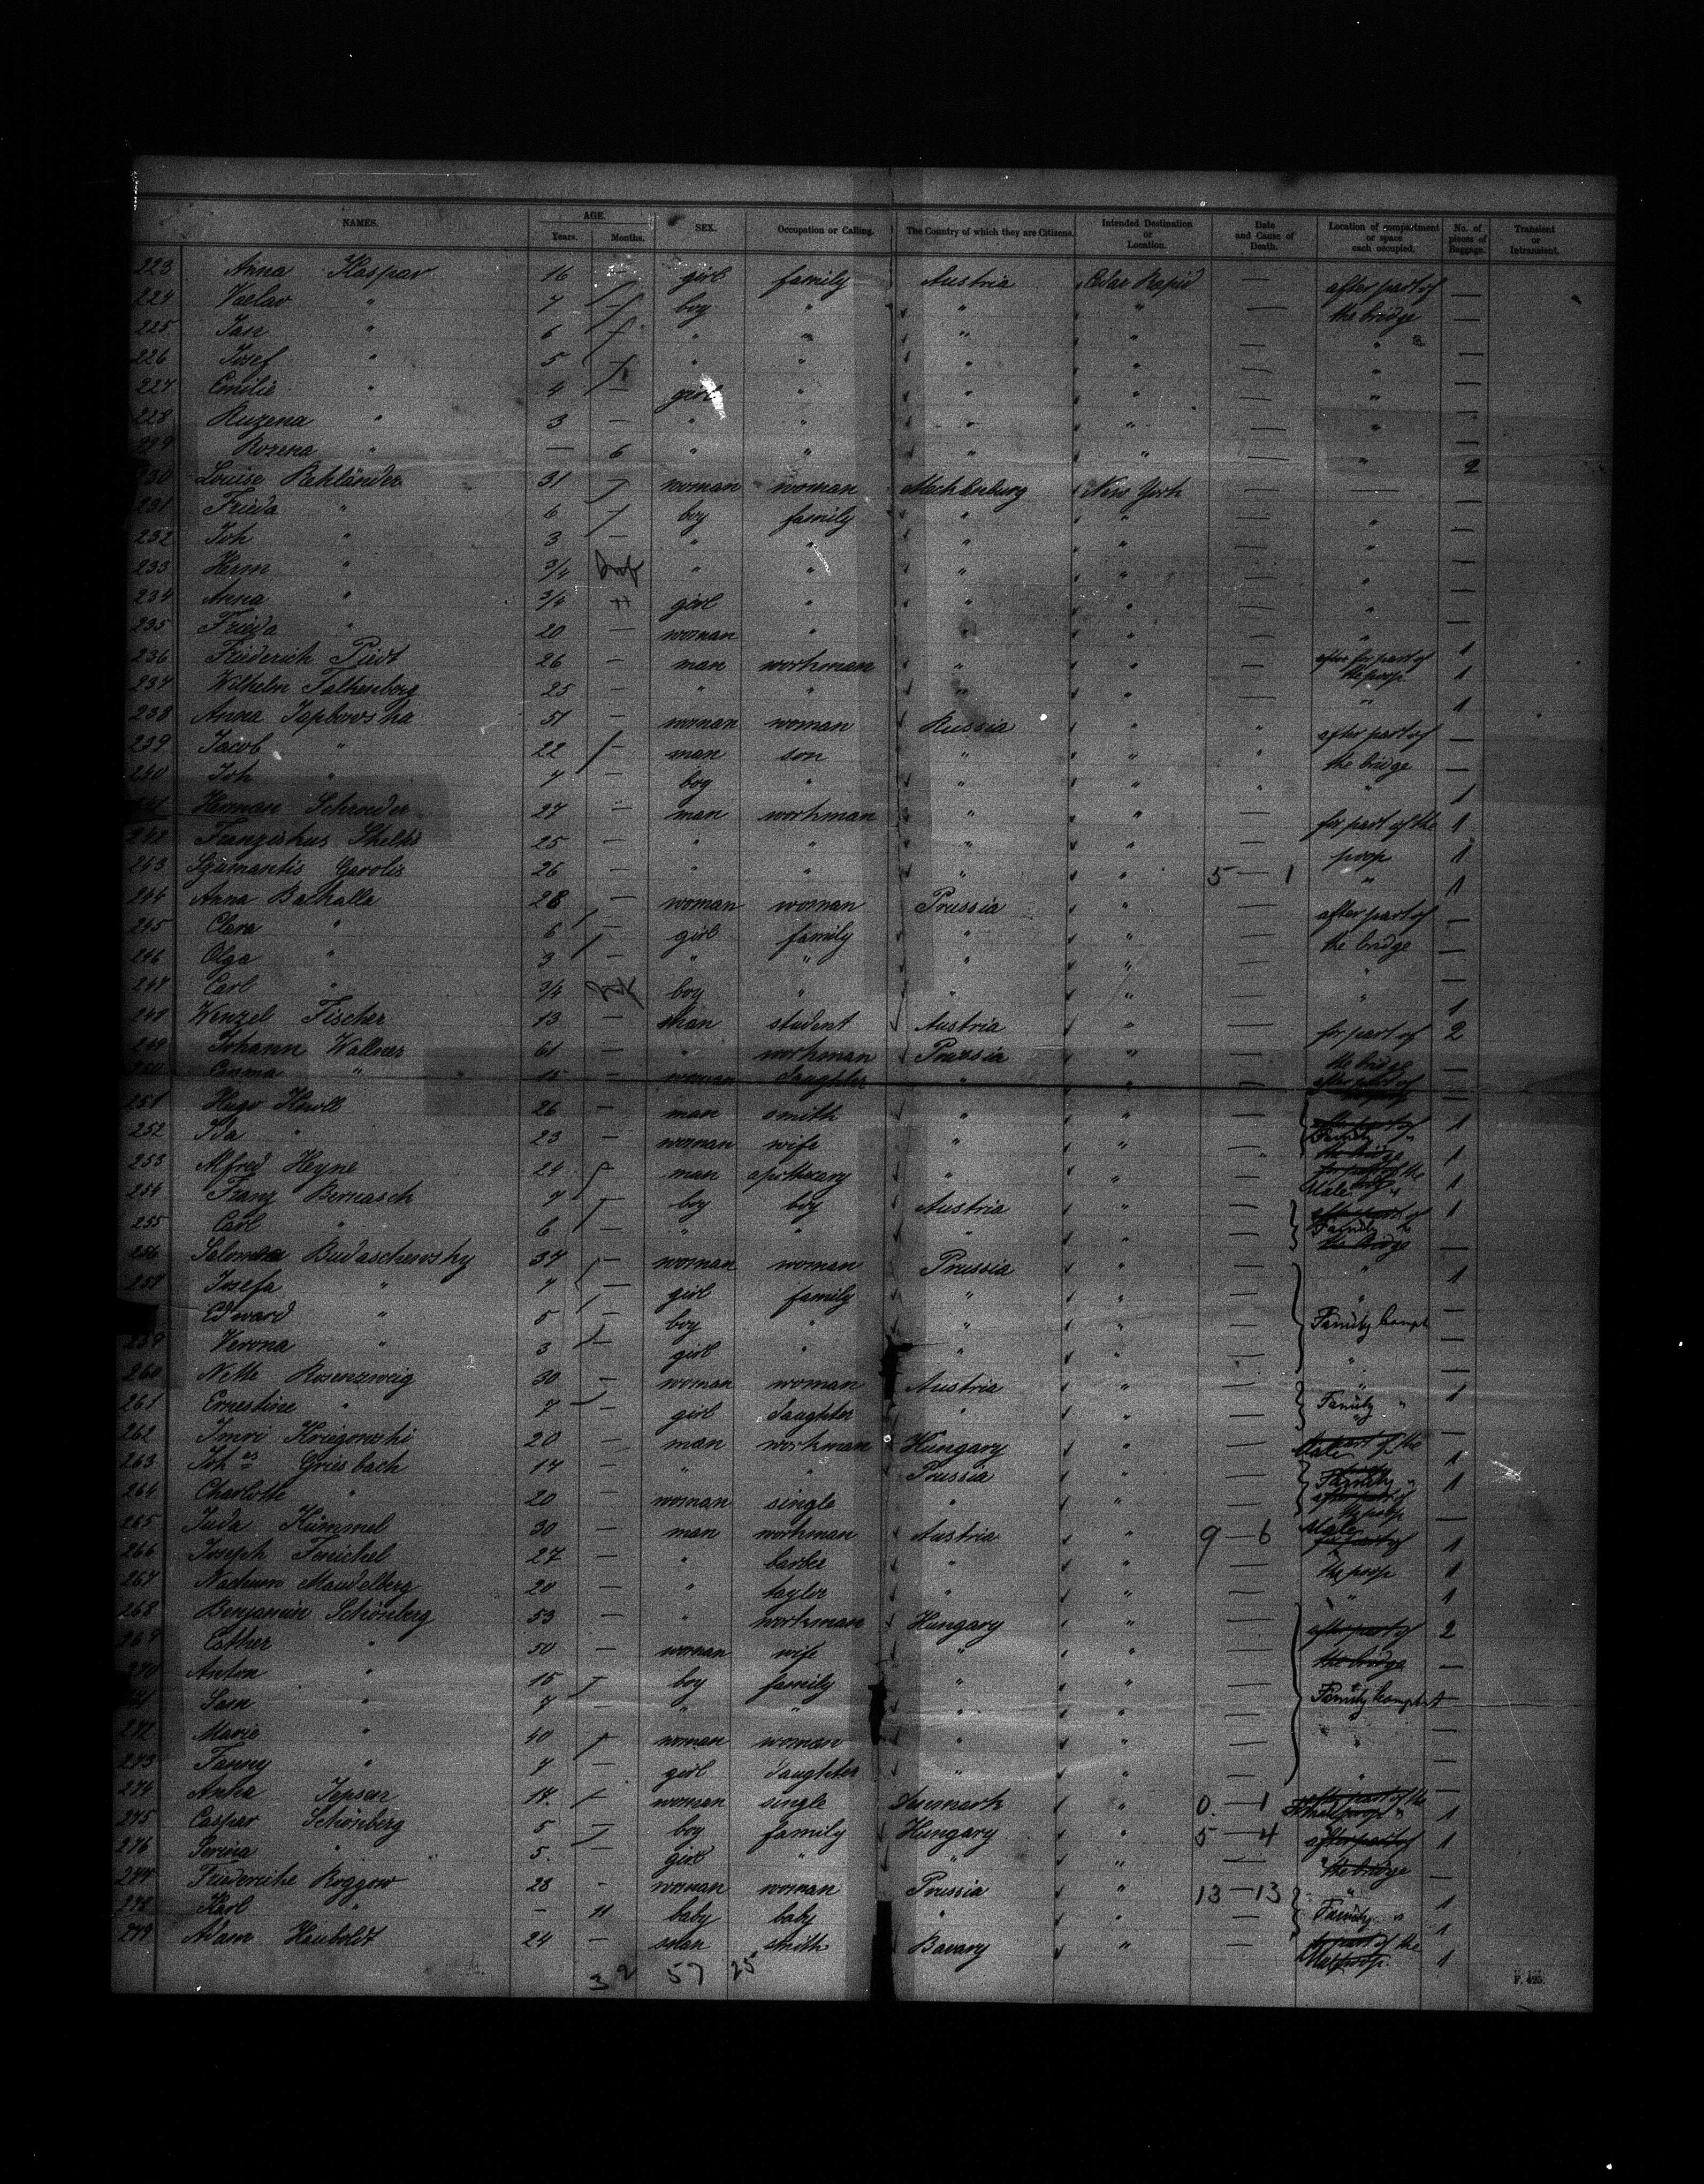 NAMES. AGE. Years. Months. SEX. Occupation or Calling. The Country of which they are Citizens. Intended Destination or Location. Date and Cause of Death. Location of compartment or space each occupied. No. of pieces of Baggage. Transient or Intransient.
223 Anna Kaspar 16 — girl family Austria Cedar Rapid — after part of —
224 Vaclav " 7 — boy " " " — the bridge —
225 Jan " 6 — " " " " — " —
226 Josef " 5 — " " " " — " —
227 Emilie " 4 — girl " " " — " —
228 Ruzena " 3 — " " " " — " —
229 Rozena " — 6 " " " " — " 2
230 Louise Rehländer 31 — woman woman Mecklenburg New York — — —
231 Frieda " 6 — boy family " " — " —
232 Joh " 3 — " " " " — " —
233 Herm " 3/4 Inf " " " " — " —
234 Anna " 3/4 " girl " " " — " —
235 Frieda " 20 — woman " " " — " 1
236 Friederich Piedt 26 — man workman " " — the poop 1
237 Wilhelm Falkenberg 25 — " " " " — " 1
238 Anna 51 — woman woman Russia " " after part of —
239 Jacob " 22 — man son " " " the bridge —
240 Joh " 7 — boy " " " " " 1
241 Herman Schroeder 27 — man workman " " — for part of the 1
242 Franziskus 25 — " " " " — poop 1
243 Szamantis Garolis 26 — " " " " 5 — 1 " 1
244 Anna Balhalla 28 — woman woman Prussia " — after part of —
245 Clara " 6 — girl family " " — the bridge —
246 Olga " 3 — " " " " — " —
247 Carl " 3/4 Inf boy " " " — " 1
248 Wenzel Fischer 13 — man student Austria " — for part of 2
249 Johann Wallner 61 — " workman Prussia " — the bridge —
250 Emma " 15 — woman daughter " " — after part of —
251 Hugo 26 — man smith " " — Family 1
252 Ida " 23 — woman wife " " " the bridge 1
253 Alfred Heyne 24 — man apothecary " " — Male " 1
254 Franz Bernasch 7 — boy boy Austria " — after part of 1
255 Carl " 6 — " " " " — Family the bridge —
256 Budaschewsky 34 — woman woman Prussia " — " 1
257 Josefa " 7 — girl family " " — " —
Edward " 5 — boy " " " — Family Compt —
259 Verona " 3 — girl " " " — " —
260 Nette Rosenzweig 30 — woman woman Austria " — " 1
261 Ernestine " 7 — girl daughter " " — Family " —
262 Imri Kriegowski 20 — man workman Hungary " — Male part of the 1
263 Joh es Griesbach 17 — " " Prussia " — Family " 1
264 Charlotte " 20 — woman single " " — after part of the poop —
265 Juda Kümmel 30 — man workman Austria " 9 — 6 Male for part of 1
266 Joseph Fenichel 27 — " barber " " — the poop 1
267 Nachum Mandelberg 20 — " taylor " " — " 1
268 Benjamin Schönberg 53 — " workman Hungary " — after part of 2
269 Esther " 50 — woman wife " " — the bridge —
270 Anton " 15 — boy family " " — Family Compt —
271 Sam " 7 — " " " " — " —
272 Marie " 40 — woman woman " " — " —
273 Fanny " 7 — girl daughter " " — " —
274 Anna Jepsen 17 — woman single Denmark " 0 — 1 after part of the poop " 1
275 Caspar Schönberg 5 — boy family Hungary " 5 — 4 after part of 1
276 " 5 girl " " " — the bridge —
277 Friedericke Roggow 23 - woman woman Prussia " 13 — 13 " 1
278 Karl " — 11 baby baby " " — Family " 1
279 Adam Hauboldt 24 — man smith Bavary " — for part of the poop 1
3 2 57 25
F. 495.